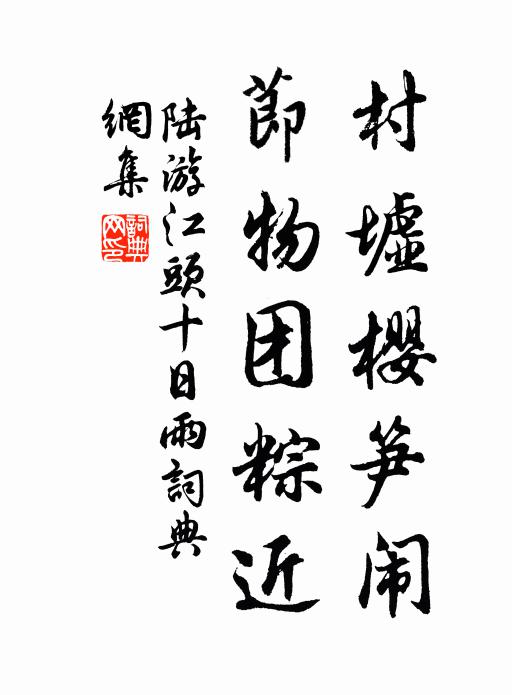 村墟櫻笋闹
節物团粽近
陆游江頭十日雨詞典
網集
詞典网印